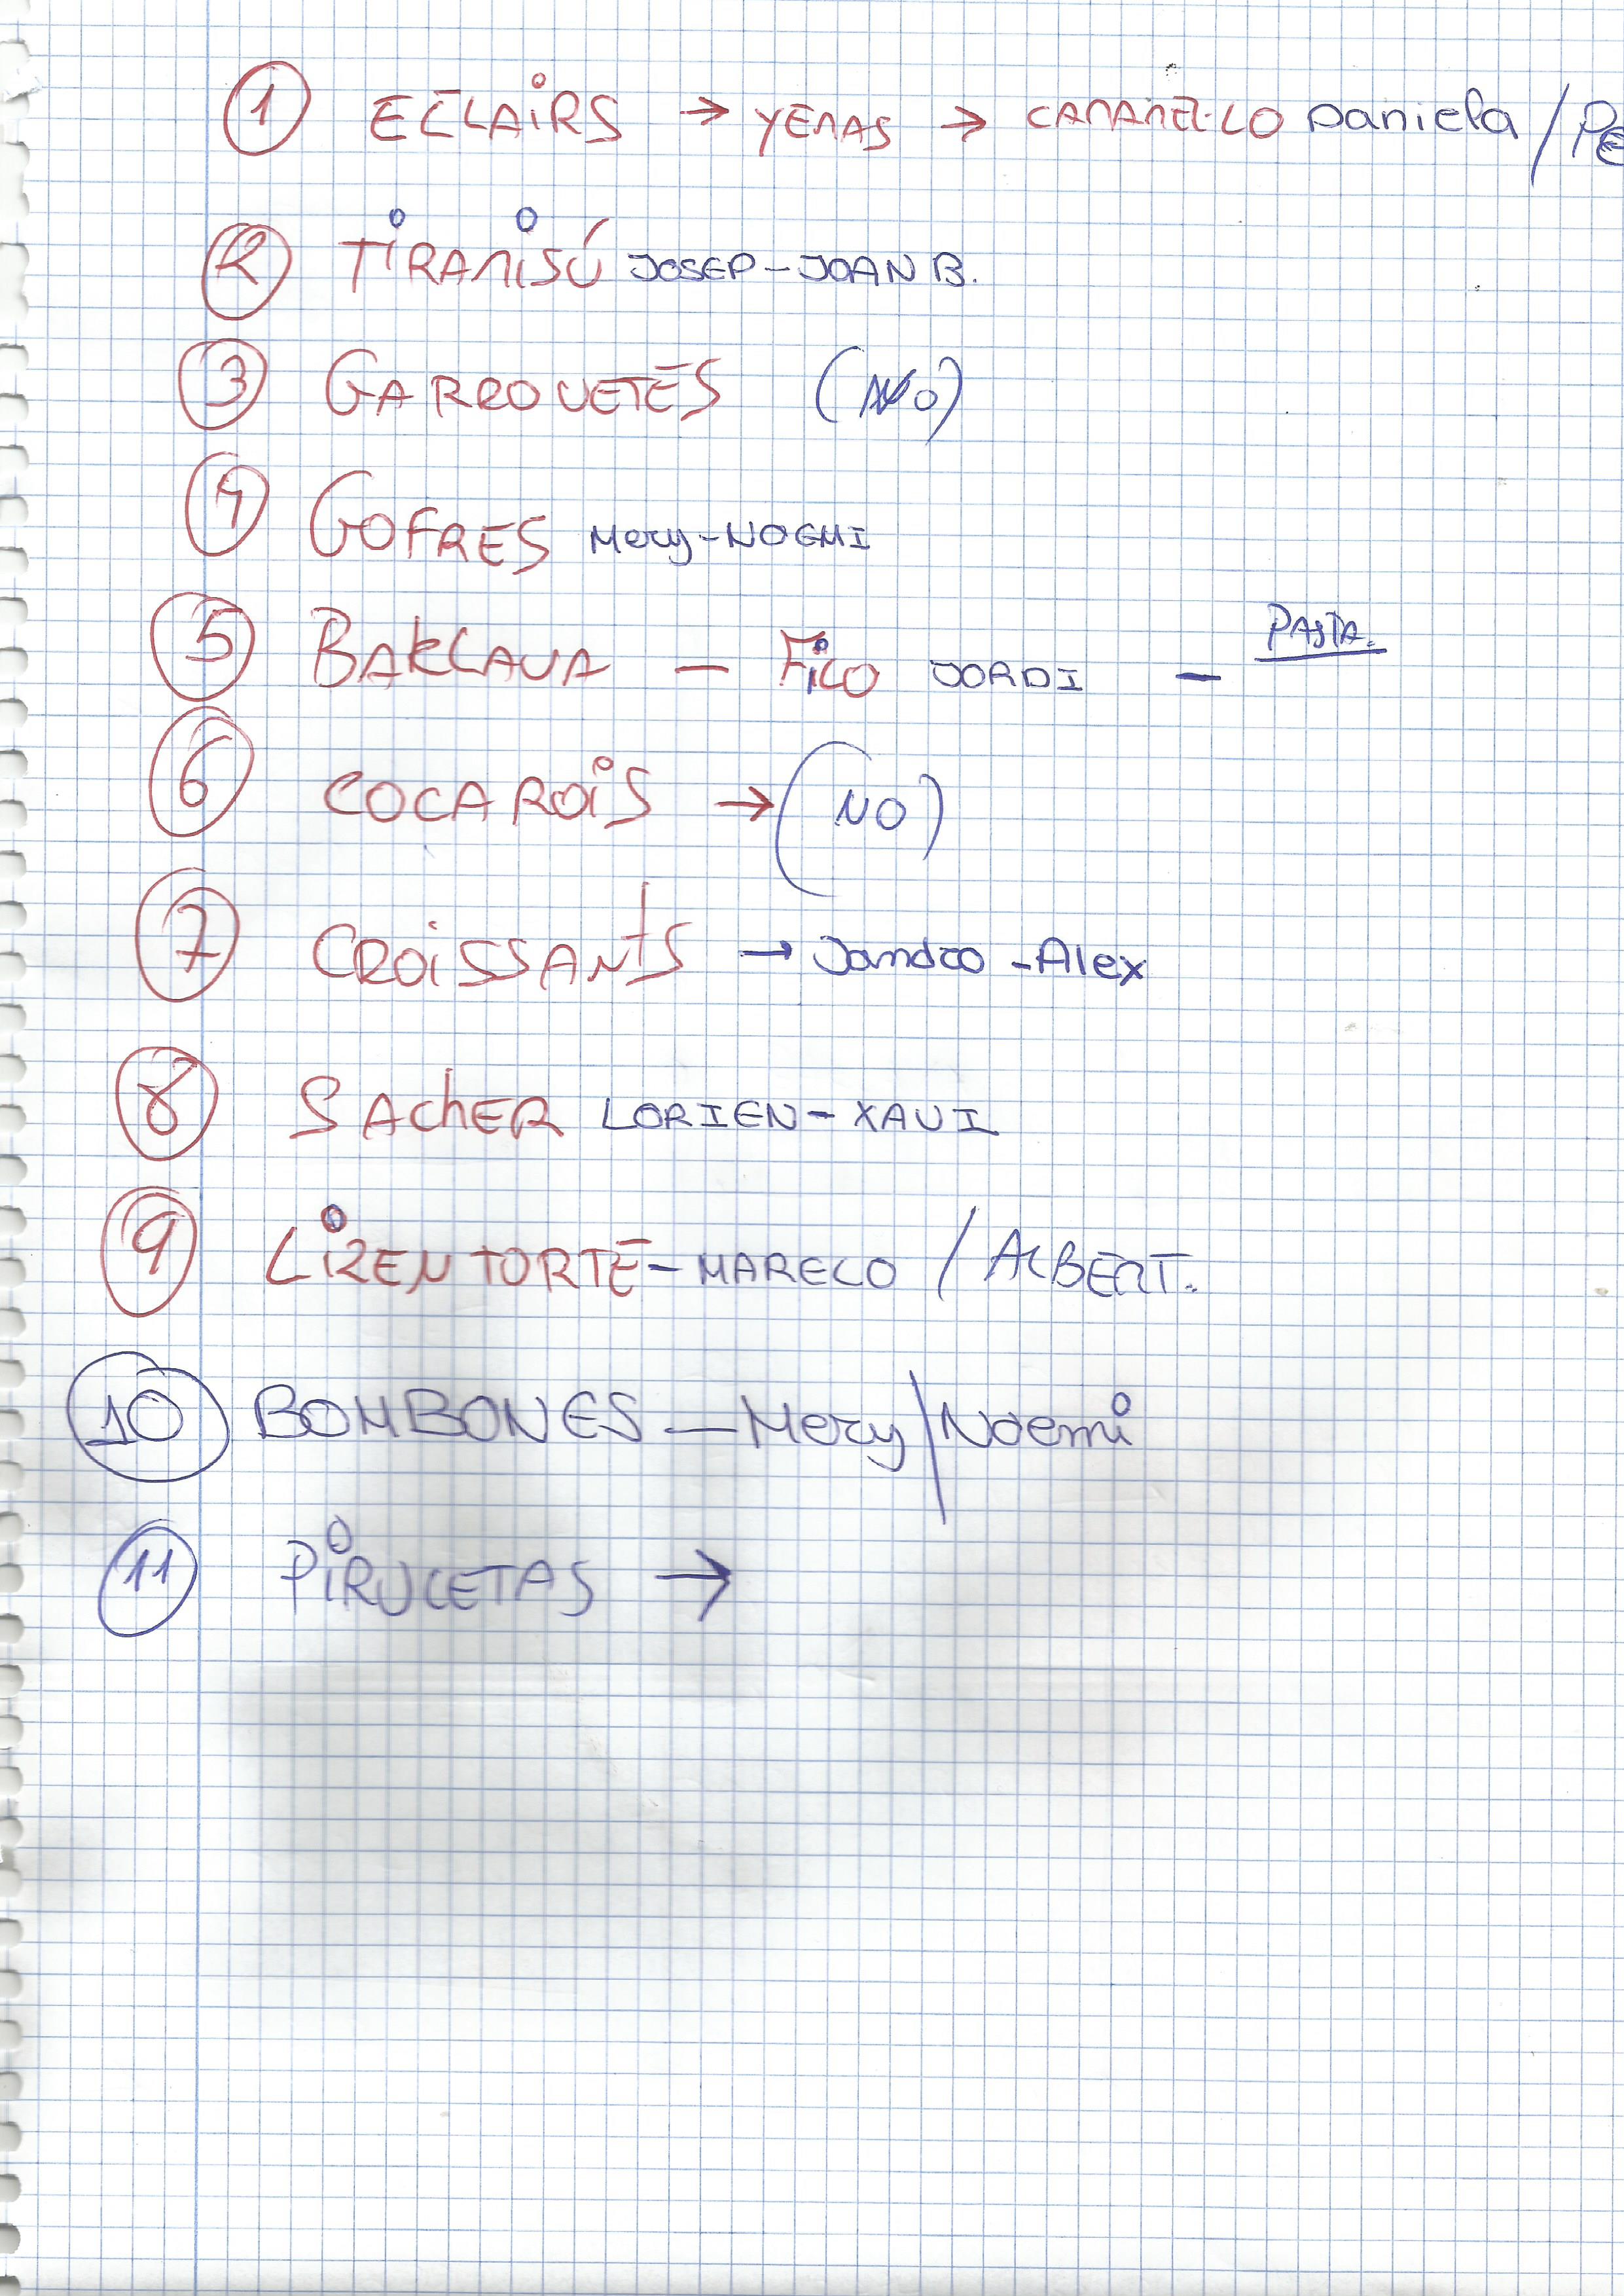 1 ECLAIRS → YEMAS → CARAMELLO Daniela / PE
2 TIRAMISÚ JOSEP-JOAN B.
3 GARROVETES (NO)
4 GOFRES Mery-NOEMI
5 BAKLAVA - FILO JORDI - PASTA.
6 COCAROIS → (NO)
7 CROISSANTS → Jandro - Alex
8 SACHER LORIEN - XAVI
9 TORTE - MARELO / ALBERT.
10 BOMBONES - Mery / Noemi
11 PIRULETAS →